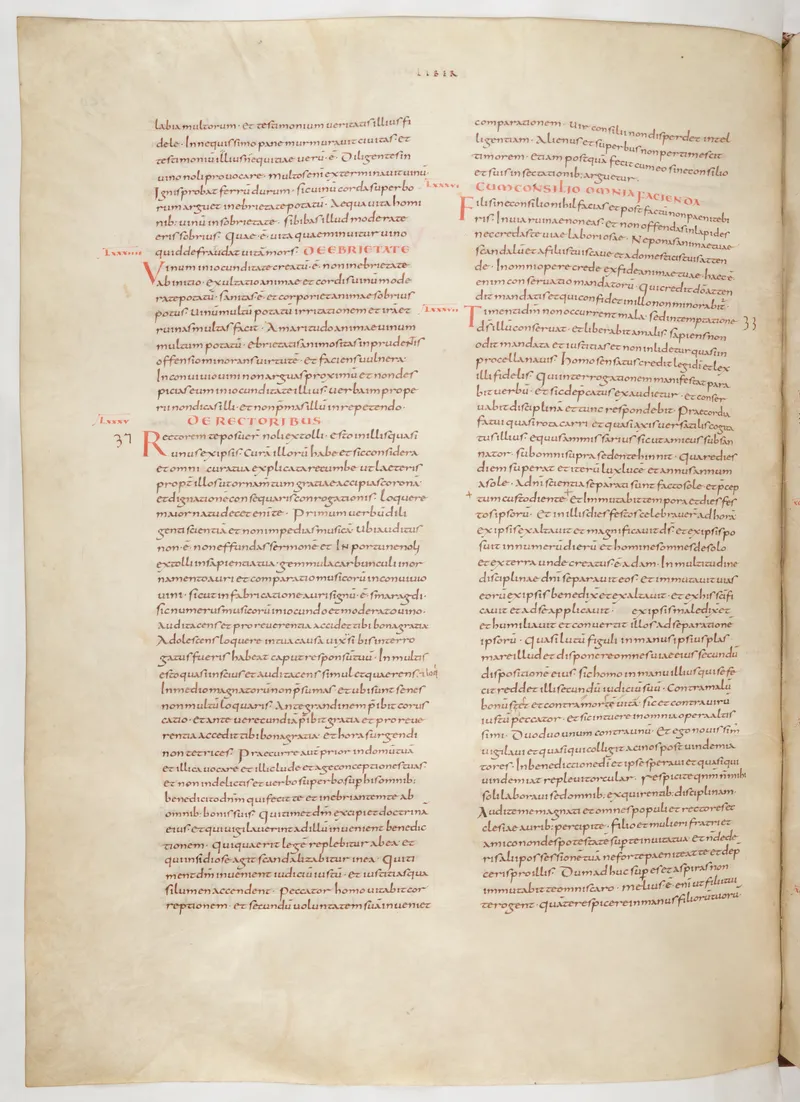 LIBER
labia multorum · et testimonium ueritatis illius fi
dele · In nequissimo pane murmurauit ciuitas · et
testimoniū illius nequitiae uerū ē · Diligentes in
uino noli prouocare · multos enī exterminauit uinū ·
Ignis probat ferrū durum · sic uinū corda superbo
rum arguet in ebrietate potatū · Aequa uita homi
nib; uinū in sobrietate · si bibas illud moderate
eris sobrius · Quae ē uita quae minuitur uino
LXXXIIII quid defraudat uitā mors · DE EBRIETATE
Vinum in iocunditate creatū ē · non in ebrietate
ab initio · exultatio animae et cordis uinū mode
rate potatū · sanitas ē · et corporiet animae sobrius
potus · Uinū multū potatū irritationem et irā et
ruinas multas facit · Amaritudo animae uinum
multum potatū · ebrietatis animositas inprudentis
offensio minorans uirtutē · et faciens uulnera ·
In conuiuio uini non arguas proximū et non des
picias eum in iocunditate illius · uerba inprope
rii non dicas illi · et non premas illū in repetendo ·
LXXXV DE RECTORIBUS
37
Rectorem te posuer noli extolli · esto in illis quasi
unus ex ipsis · Curā illorū habe et sic considera
et omni cura tua explicata recumbe · ut laeteris
propt illos ut ornamtum gratiae accipias coronā
et dignationē consequaris conrogationis · loquere
maior natu decet eni te · Primum uerbū dili
genti scientiā et non impedias musicā · Ubi auditus
non ē · non effundas sermonē et INportune noli
extolli in sapientia tua · gemmula carbunculi in or
namento auri et comparatio musicorū in conuiuio
uini · sicut in fabricatione auri signū ē smaragdi ·
sic numerus musicorū in iocundo et moderato uino ·
Audi tacens et pro reuerentia accidet tibi bona gratia
Adolescens loquere in tua causa uix · si bis interro
gatus fueris habeat caput responsū tuū · In multis
esto quasi inscius et audi tacens simul et quaerens · loq
In medio magnatorū non psumas · et ubi sunt senes
non multū loquaris · Ante grandinem pibit corus
catio · et ante uerecundiā pibit gratia et pro reue
rentia accedit tibi bona gratia · et hora surgendi
non te trices · Praecurre aut prior in domū tuā
et illic auocare et illic lude et age conceptiones tuas
et non in delictis et uerbo superbo sup his omnib;
benedicito dnm qui fecit te et inebriantem te ab
omnib; bonis suis · Qui timet dm excipiet doctrinā
eius · et qui uigilauerint ad illū inuenient benedic
tionem · Qui quaerit legē replebitur ab ea · et
qui insidiose agit scandalizabitur in ea · Qui ti
ment dm inuenient iudiciū iustū · et iustitias quasi
si lumen accendent · Peccator homo uitabit cor
reptionem · et secundū uoluntatem suā inueniet
comparationem · Uir consilii non disperdet intel
ligentiam · Alienus et superbus non pertimescit
timorem · etiam postquā fecit cum eo sine consilio
et suis insectationib; arguetur ·
LXXXVI CUM CONSILIO OMNIA FACIENDA
Fili sine consilio nihil facias et post factū non paenitebi
ris · In uia ruinae non eas · et non offendas in lapides
ne credas te uiae laboriosae · Ne ponas animae tuae
scandalū et a filiis tuis caue et a domesticis tuis atten
de · In omni opere crede ex fide animae tuae · haec ē
enim conseruatio mandatorū · Qui credit dō atten
dit mandatis et qui confidet in illo non minorabit ·
LXXXVII Timenti dm non occurrent mala · sed in temptatione
33
ds illū conseruat · et liberabit a malis · Sapiens non
odit mandata et iustitias et non inlidetur quasi in
procella nauis · Homo sensatus credit legi di et lex
illi fidelis · Qui interrogationem manifestat para
bit uerbū · et sic depcatus exaudietur · et conser
uabit disciplinā et tunc respondebit · Praecordia
fatui quasi rota carri · et quasi axis uersatilis cogita
tus illius · equus ammissarius sic ut amicus subsan
nator · sub omni supra sedente hinnit · Quare dies
diem superat et iterū lux lucē et annus annum
a sole · A dni scientia separati sunt facto sole · et pcep
tum custodiente · Et Immutabit tempora et dies fes
tos ipsorū · Et in illis dies festos celebrauer ad horā
ex ipsis exaltauit et magnificauit ds · et ex ipsis po
suit in numerū dierū · et homines omnes de solo
et ex terra unde creatus ē adam · In multitudine
disciplinae dni separauit eos · et immutauit uias
eorū ex ipsis benedixet et exaltauit · et ex his scifi
cauit et ad se applicauit · ex ipsis maledixet
et humiliauit et conuertit illos ad separationē
ipsorū · Quasi lutū figuli in manus ipsius plas
mare illud et disponere omnes uiae eius secundū
dispositionē eius · sic homo in manu illius qui se fe
cit reddet illi secundū iudiciū suū · Contra malū
bonū est · et contra mortē uitā · sic et contra uirū
iustū peccator · et sic intuere in omnia opera altis
simi · Duo duo unum contra unū · Et ego nouissim
uigilaui et quasi qui colligit acinos post uindemia
tores · In benedictione di et ipse speraui et quasi qui
uindemiat repleui torcular · respicite qnm n mihi
soli laboraui sed omnib; exquirentib; disciplinam ·
Audite me magnati et omnes populi et rectores ec
clesiae aurib; percipite · filio et mulieri fratri et
amico non des potestate sup te in uita tua · et n dede
ris alii possessionē tuā ne forte paeniteat te et dep
ceris pro illis · Dum adhuc sup es et aspiras non
immutabit te omnis caro · melius ē enī ut filii tui
te rogent · quā te respicere in manus filiorū tuorū ·